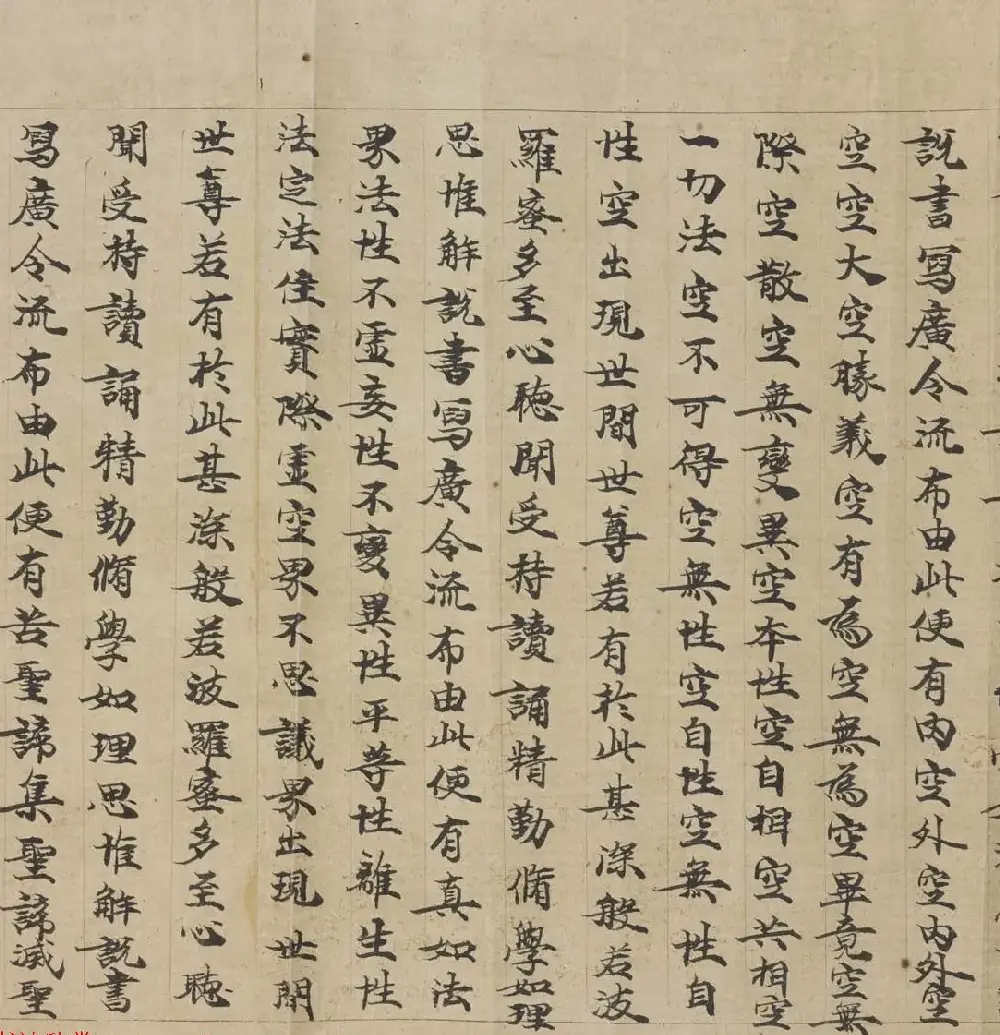 說書寫廣令流布由此便有內空外空內外空
空空大空勝義空有為空無為空畢竟空無
際空散空無變異空本性空自相空共相空
一切法空不可得空無性空自性空無性自
性空出現世間世尊若有於此甚深般若波
羅蜜多至心聽聞受持讀誦精勤脩學如理
思惟解說書寫廣令流布由此便有真如法
界法性不虛妄性不變異性平等性離生性
法定法住實際虛空界不思議界出現世間
世尊若有於此甚深般若波羅蜜多至心聽
聞受持讀誦精勤脩學如理思惟解說書
寫廣令流布由此便有苦聖諦集聖諦滅聖